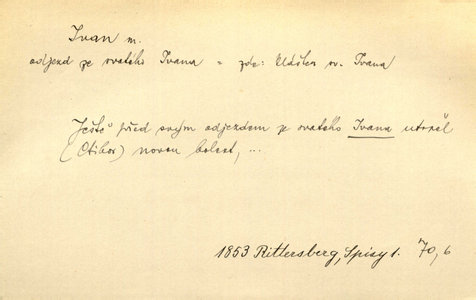 Ivan m.
odjezd ze svatého Ivana = zde: klášter sv. Ivana
Ještě před svým odjezdem z svatého Ivana utržil
(Ctibor) novou bolest, ...
1853 Rittersberg, Spisy 1. 70, 6